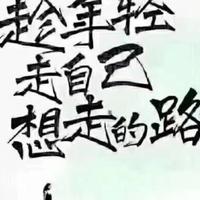 趁年轻
走自己
想走的路